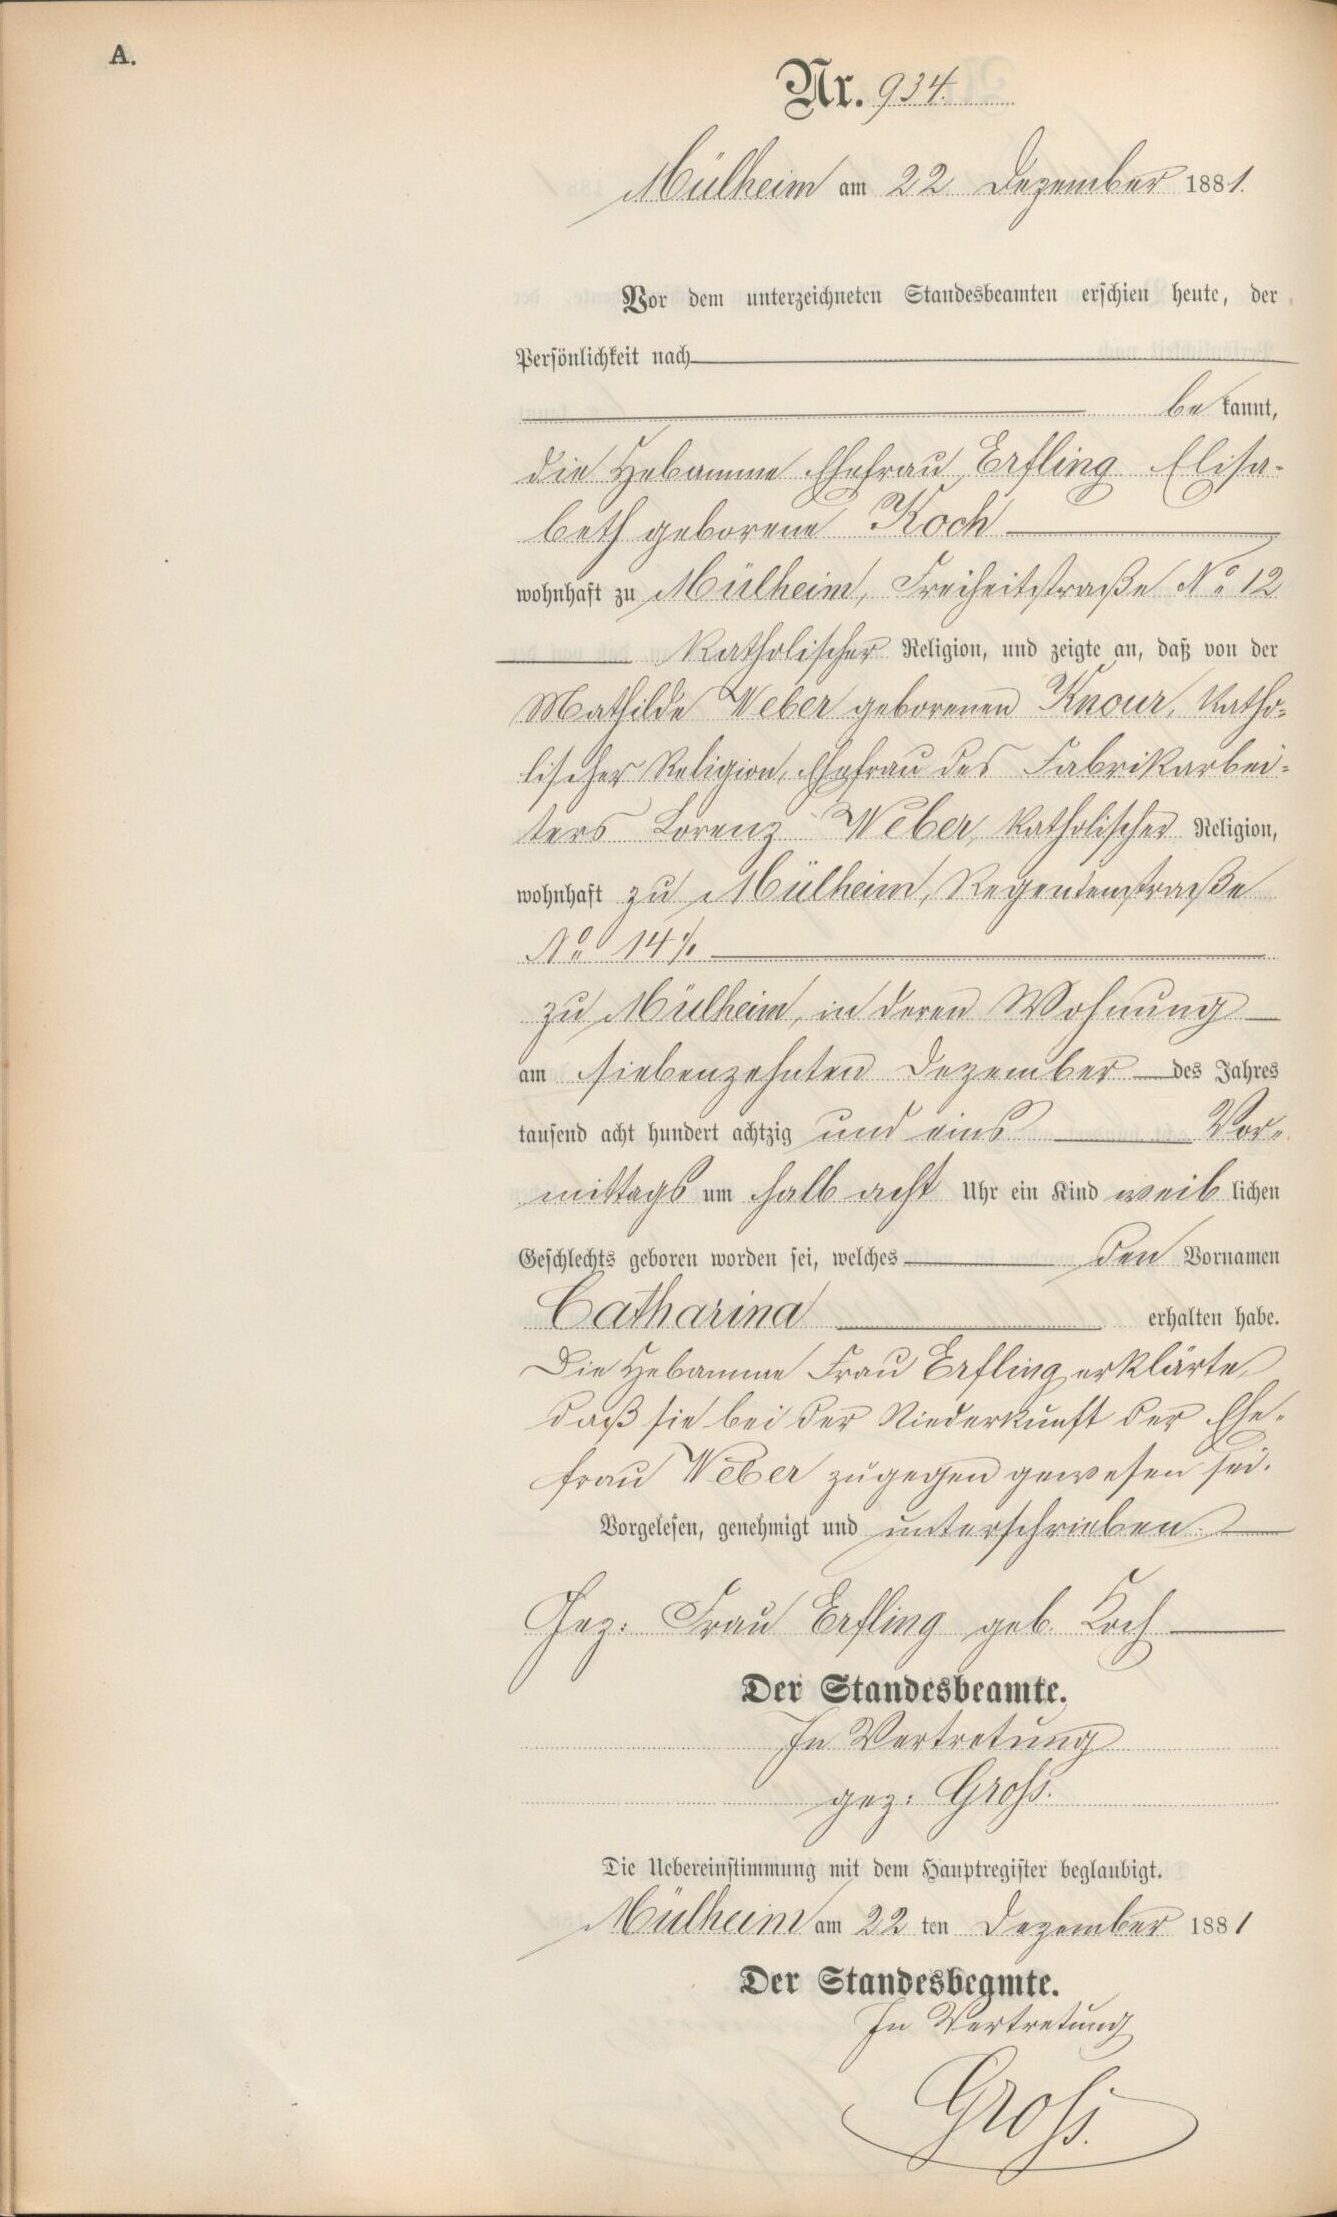 A.
Nr. 934.
Mülheim am 22 Dezember 1881.
Vor dem unterzeichneten Standesbeamten erschien heute, der
Persönlichkeit nach
be kannt,
die Hebamme Ehefrau Erfling Elisa-
beth geborene Koch
wohnhaft zu Mülheim, Freiheitstraße No 12
Katholischer Religion, und zeigte an, daß von der
Mathilde Weber geborenen Knour, Katho-
lischer Religion, Ehefrau des Fabrikarbei-
ters Lorenz Weber, katholischer Religion,
wohnhaft zu Mülheim, Regentenstraße
No 14
zu Mülheim, in deren Wohnung
am siebenzehnten Dezember des Jahres
tausend acht hundert achtzig und eins Vor-
mittags um halb acht Uhr ein Kind weib lichen
Geschlechts geboren worden sei, welches den Vornamen
Catharina erhalten habe.
Die Hebamme Frau Erfling erklärte,
daß sie bei der Niederkunft der Ehe-
frau Weber zugegen gewesen sei.
Vorgelesen, genehmigt und unterschrieben.
Gez: Frau Erfling geb. Koch
Der Standesbeamte.
In Vertretung
gez: Groß.
Die Uebereinstimmung mit dem Hauptregister beglaubigt.
Mülheim am 22 ten Dezember 1881
Der Standesbeamte.
In Vertretung
Groß.